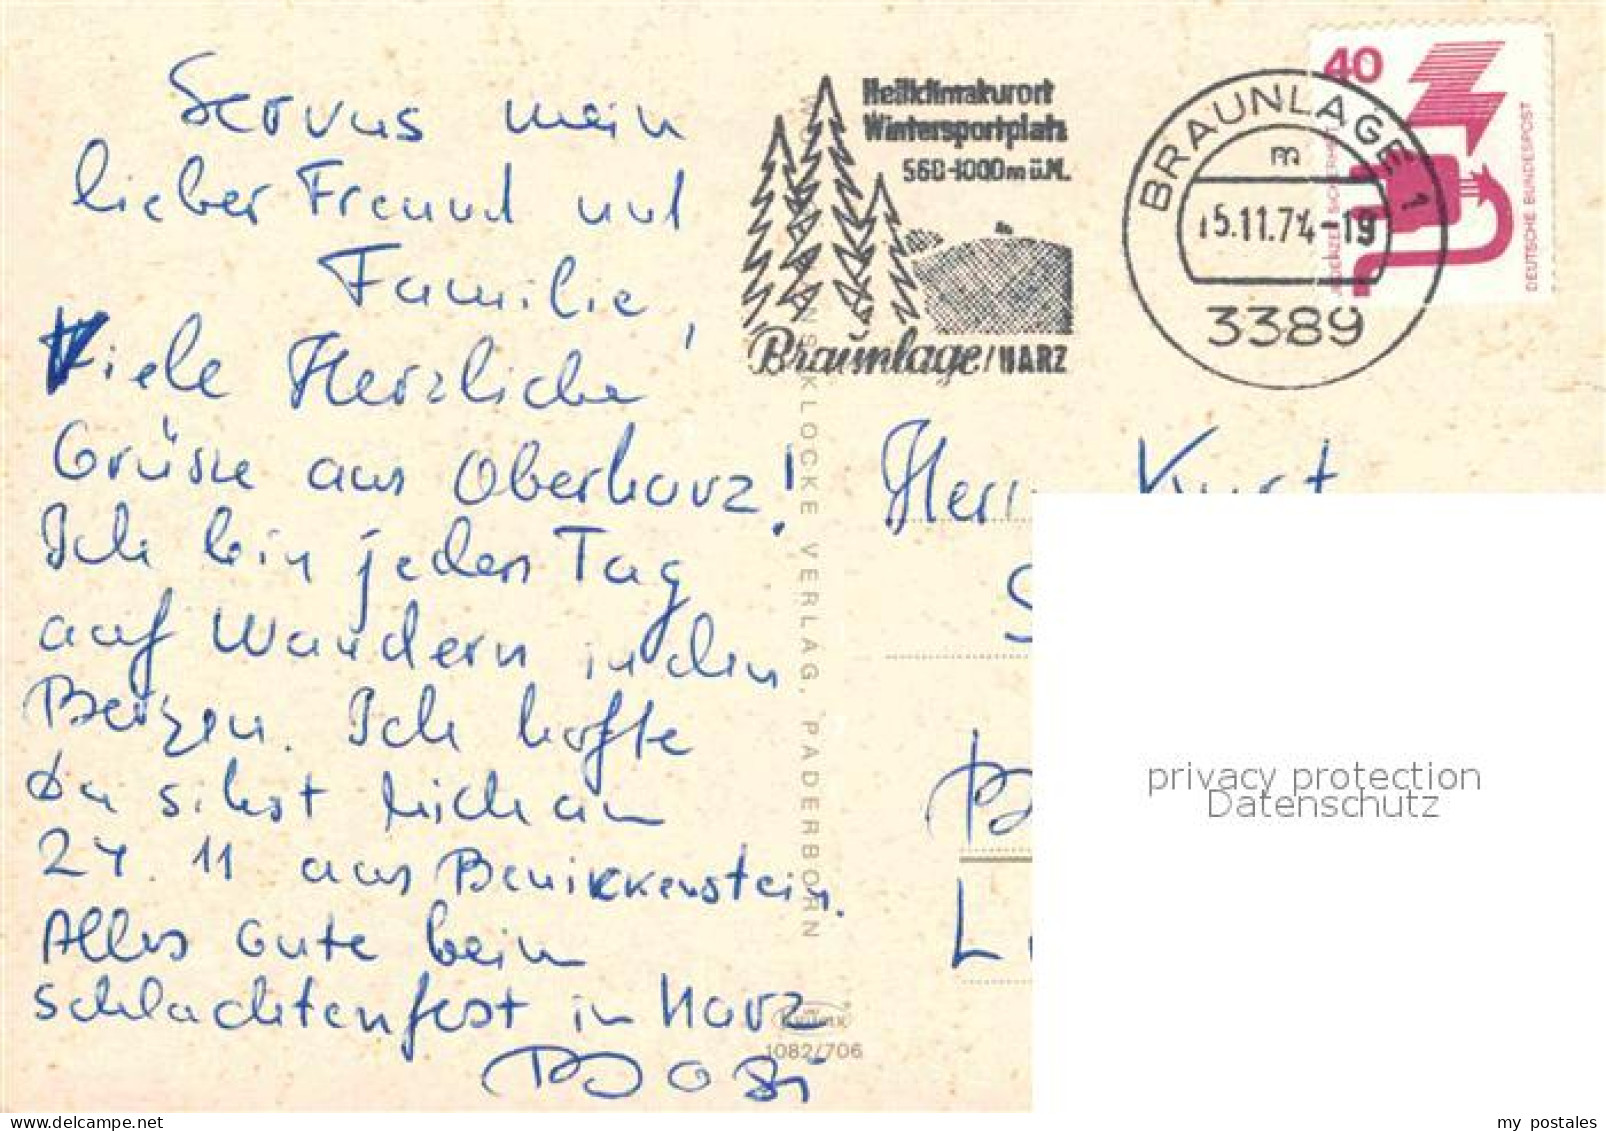 Servus mein
lieber Freund und
Familie,
Viele Herzliche
Grüsse aus Oberharz!
Ich bin jeden Tag
auf Wandern in den
Bergen. Ich hoffe
Du
am
24.11 aus Bennikkenstein.
Alles Gute beim
schlachtenfest in Harz
Heilklimakurort
Wintersportplatz
560-1000m ü.M.
Braunlage/HARZ
BRAUNLAGE 1
m
15.11.74-19
3389
40
DEUTSCHE BUNDESPOST
JEDERZEIT SICHERHEIT
KLOCKE VERLAG, PADERBORN
1082/706
Herrn Kurt
S
B
L
privacy protection
Datenschutz
my postales